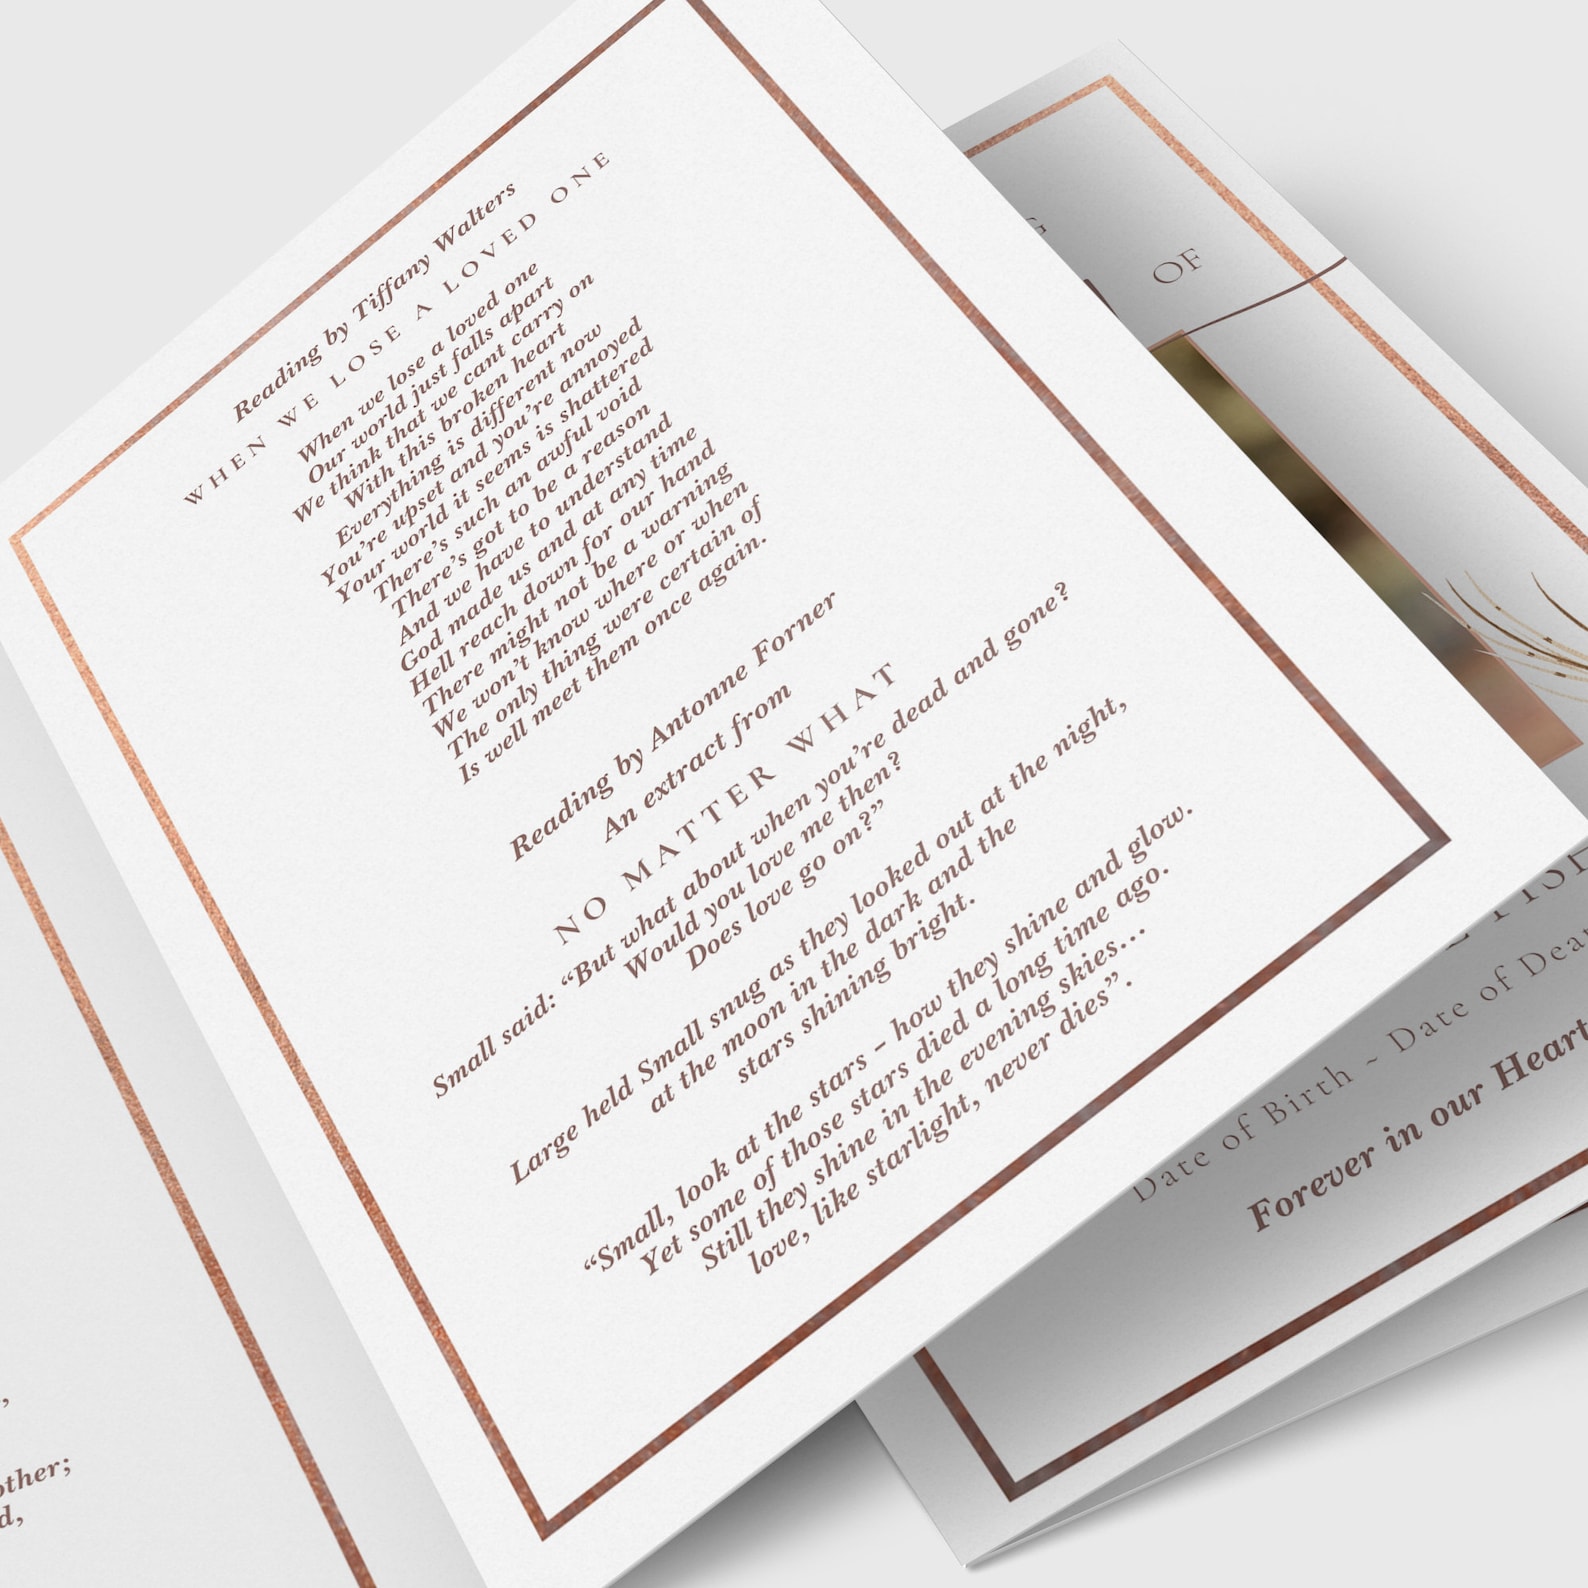 Reading by Tiffany Walters
WHEN WE LOSE A LOVED ONE
When we lose a loved one
Our world just falls apart
We think that we cant carry on
With this broken heart
Everything is different now
You're upset and you're annoyed
Your world it seems is shattered
There's such an awful void
There's got to be a reason
And we have to understand
God made us and at any time
Hell reach down for our hand
There might not be a warning
We won't know where or when
The only thing were certain of
Is well meet them once again.
Reading by Antonne Forner
An extract from
NO MATTER WHAT
Small said: “But what about when you're dead and gone?
Would you love me then?
Does love go on?”
Large held Small snug as they looked out at the night,
at the moon in the dark and the
stars shining bright.
“Small, look at the stars – how they shine and glow.
Yet some of those stars died a long time ago.
Still they shine in the evening skies...
love, like starlight, never dies”.
OF
Date of Birth ~ Date of Dea
Forever in our Heart
other;
d,